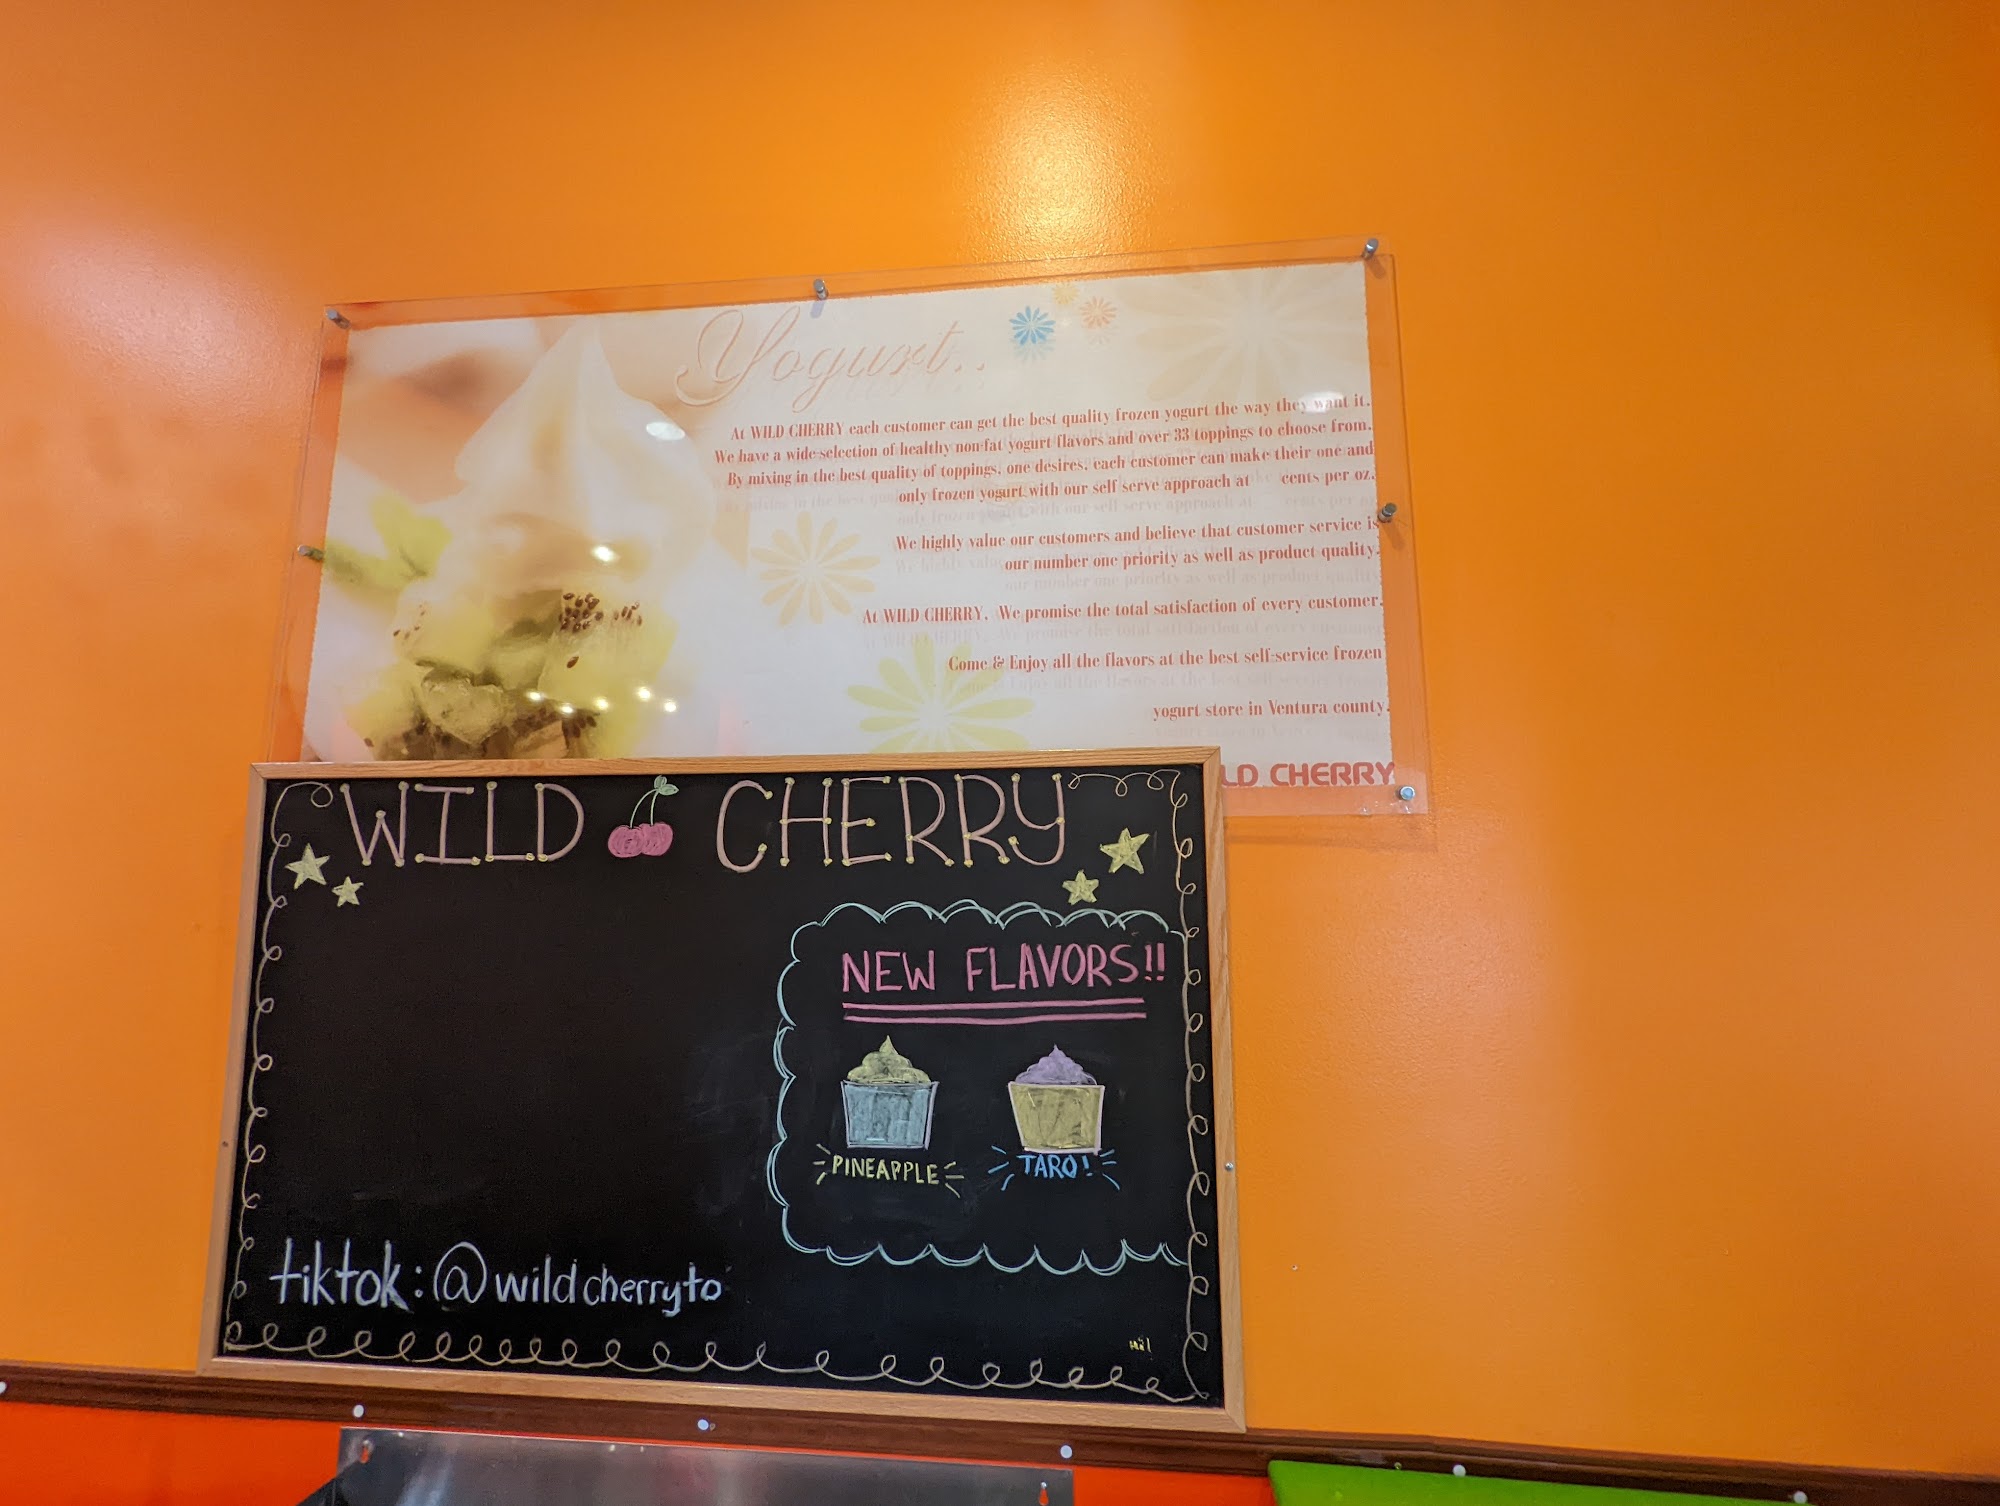 Yogurt..
At WILD CHERRY each customer can get the best quality frozen yogurt the way they want it.
We have a wide selection of healthy non-fat yogurt flavors and over 33 toppings to choose from.
By mixing in the best quality of toppings, one desires, each customer can make their one and
only frozen yogurt with our self serve approach at cents per oz.
We highly value our customers and believe that customer service is
our number one priority as well as product quality.
At WILD CHERRY, We promise the total satisfaction of every customer.
Come & Enjoy all the flavors at the best self-service frozen
yogurt store in Ventura county.
LD CHERRY
WILD CHERRY
NEW FLAVORS!!
PINEAPPLE TARO!
tiktok: @wildcherryto